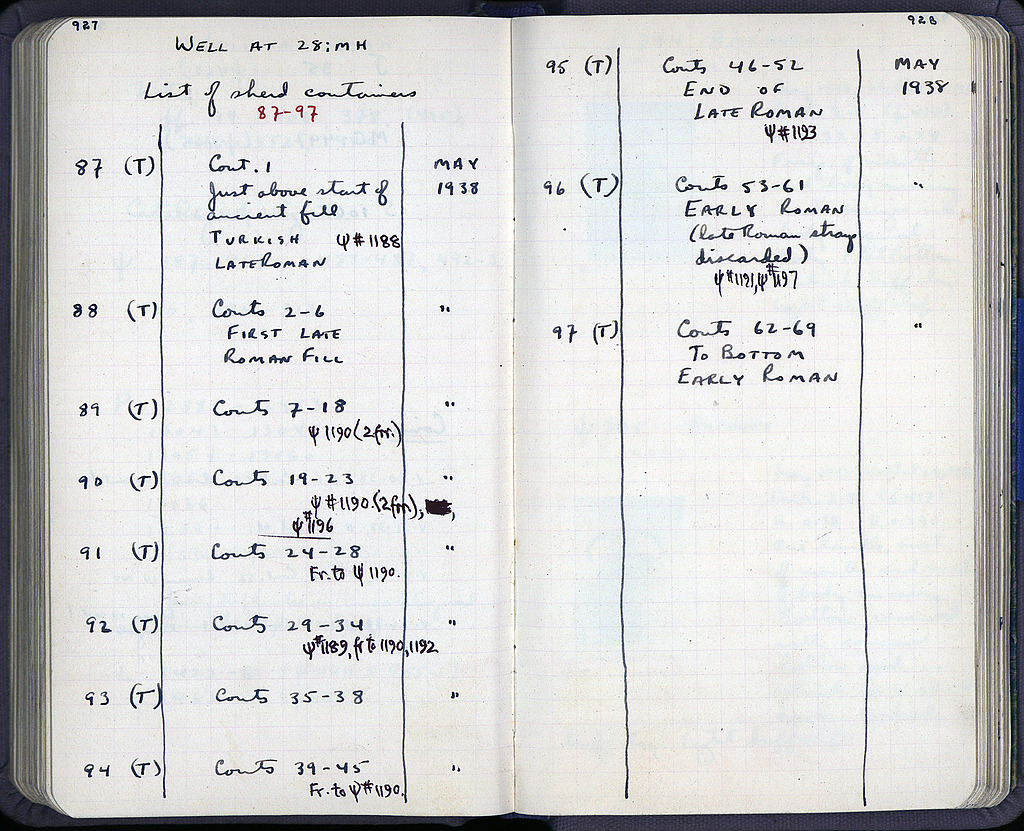 927
WELL AT 28:MH
List of sherd containers
87-97
87 (T) Cont. 1 MAY
Just above start of 1938
ancient fill
TURKISH ψ#1188
LATE ROMAN
88 (T) Conts 2-6 "
FIRST LATE
ROMAN FILL
89 (T) Conts 7-18 "
ψ 1190 (2 fr.)
90 (T) Conts 19-23 "
ψ#1190 (2 frr),
ψ#1196
91 (T) Conts 24-28 "
Fr. to ψ 1190.
92 (T) Conts 29-34 "
ψ#1189, fr to 1190, 1192
93 (T) Conts 35-38 "
94 (T) Conts 39-45 "
Fr. to ψ#1190.
928
95 (T) Conts 46-52 MAY
END OF 1938
LATE ROMAN
ψ#1193
96 (T) Conts 53-61 "
EARLY ROMAN
(late Roman strays
discarded)
ψ#1191, ψ#1197
97 (T) Conts 62-69 "
TO BOTTOM
EARLY ROMAN